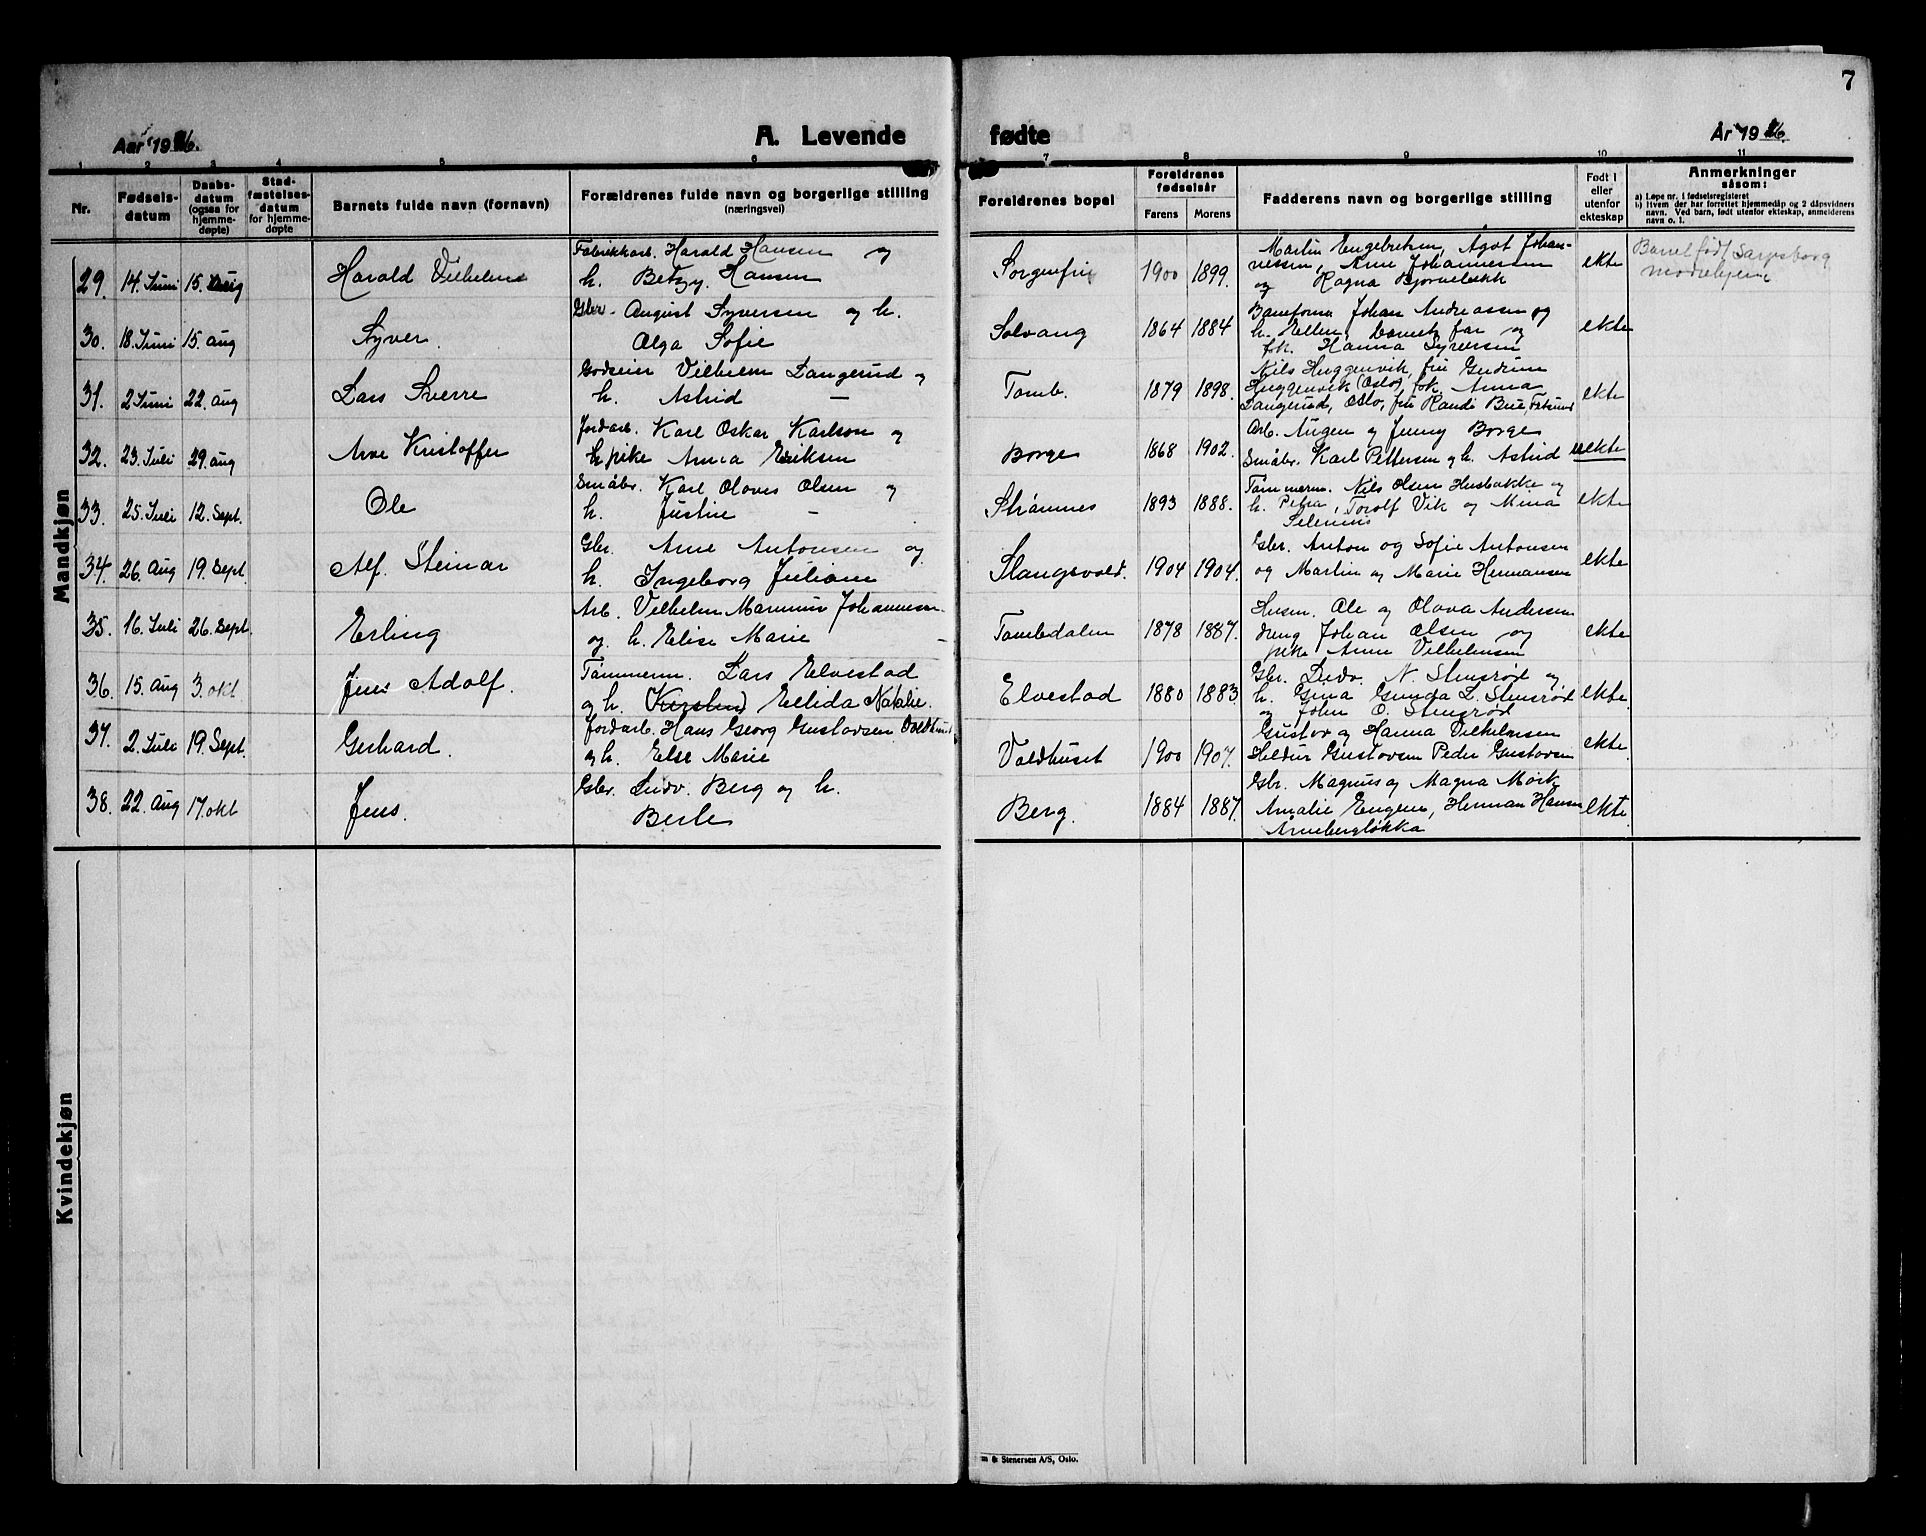 7
Aar 1926.
A. Levende
fødte
År 1926.
1 2 3 4 5 6 7 8 9 10 11
Nr.
Fødsels-
datum
Daabs-
datum
(ogsaa for
hjemme-
døpte)
Stad-
fæstelses-
datum
for hjemme-
døpte
Barnets fulde navn (fornavn)
Forældrenes fulde navn og borgerlige stilling
(næringsvei)
Foreldrenes bopel
Foreldrenes
fødselsår
Farens
Morens
Fadderens navn og borgerlige stilling
Født i
eller
utenfor
ekteskap
Anmerkninger
såsom:
a) Løpe nr. i fødselsregisteret
b) Hvem der har forrettet hjemmedåp og 2 dåpsvidners
navn. Ved barn, født utenfor ekteskap, anmelderens
navn o. l.
Mandkjøn
29. 14. Juni 15. Aug Harald Vilhelm
Fabrikkarb. Harald Hansen og
h. Betzy. Hansen
Sorgenfri 1900 1899.
Martin Engebretsen, Agot Johan-
nessen, Arne Johannessen
og Ragna Bjørnebekk
ekte
Barnet født Sarpsborg
30. 18. Juni 15. aug Syver.
Gbr. August Syversen og h.
Olga Sofie
Solvang 1864 1884
Baneform. Johan Andreassen og
h. Ellen, barnets far og
frk. Hanna Syversen
ekte
31. 2 Juni 22. aug Lars Sverre
Godseier Vilhelm Langerud og
h. Astrid —
Tomb. 1879 1898.
Nils Huggenvik, fru Gudrun
Huggenvik (Oslo), frk. Anna
Langerud, Oslo, fru Randi Bue, Fetsund
ekte
32. 23. Juli 29. aug Arve Kristoffer
Jordarb. Karl Oskar Karlson og
pike Anna Eriksen
Borge 1868 1902.
Arb. Augen og Jenny Borge
Småbr. Karl Pettersen og h. Astrid
uekte
33. 25. Juli 12. Sept. Ole
Småbr. Karl Olaves Olsen og
h. Justine —
Strømnes 1893 1888.
Tømmerm. Nils Olsen Husbakke og
h. Petra, Torolf Vik og Mina
ekte
34. 26. Aug 19. Sept Alf Steinar
Gbr. Arne Antonsen og
h. Ingeborg Juliane
Slangsvold. 1904 1904.
Gbr. Anton og Sofie Antonsen
og Martin og Marie Hermansen
ekte
35. 16. Juli 26. Sept. Erling
Arb. Vilhelm Marinius Johannesen
og h. Elise Marie —
Tombdalen 1878 1887.
Husm. Ole og Olava Andersen
dreng Johan Olsen og
pike Anne Vilhelmsen
ekte
36. 15. Aug 3. okt Jens Adolf.
Tømmerm. Lars Elvestad
og h. (Kirsten) Ellida Natalie.
Elvestad 1880 1883.
Gbr. Ludv. N. Stensrød og
h. Gina Gunda L. Stensrød
og John O. Stensrød
ekte.
37. 2. Juli 19. Sept. Gerhard.
Jordarb. Hans Georg Gustavsen Voldhuset
og h. Else Marie
Voldhuset 1900 1907.
Gustav og Hanna Vilhelmsen
Heldur Gustavsen Peder Gustavsen
ekte
38. 22. Aug 17. okt Jens.
Gbr. Ludv. Berg og h.
Berle
Berg. 1884 1887.
Gbr. Magnus og Magna Mørk
Amalie Engene, Herman Hansen
Arnebergløkka
ekte.
Kvindekjøn
& Stenersen A/S, Oslo.